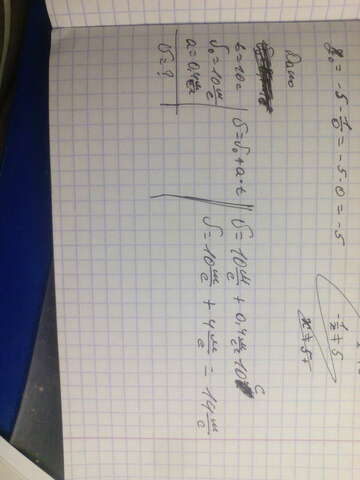 x₀ = -5 - 1/0 = -5 · 0 = -5
Дано
t = 10 с
υ₀ = 10 м/с
a = 0,4 м/с²
υ = ?
υ = υ₀ + a · t
υ = 10 м/с + 0,4 м/с² 10 с
υ = 10 м/с + 4 м/с = 14 м/с